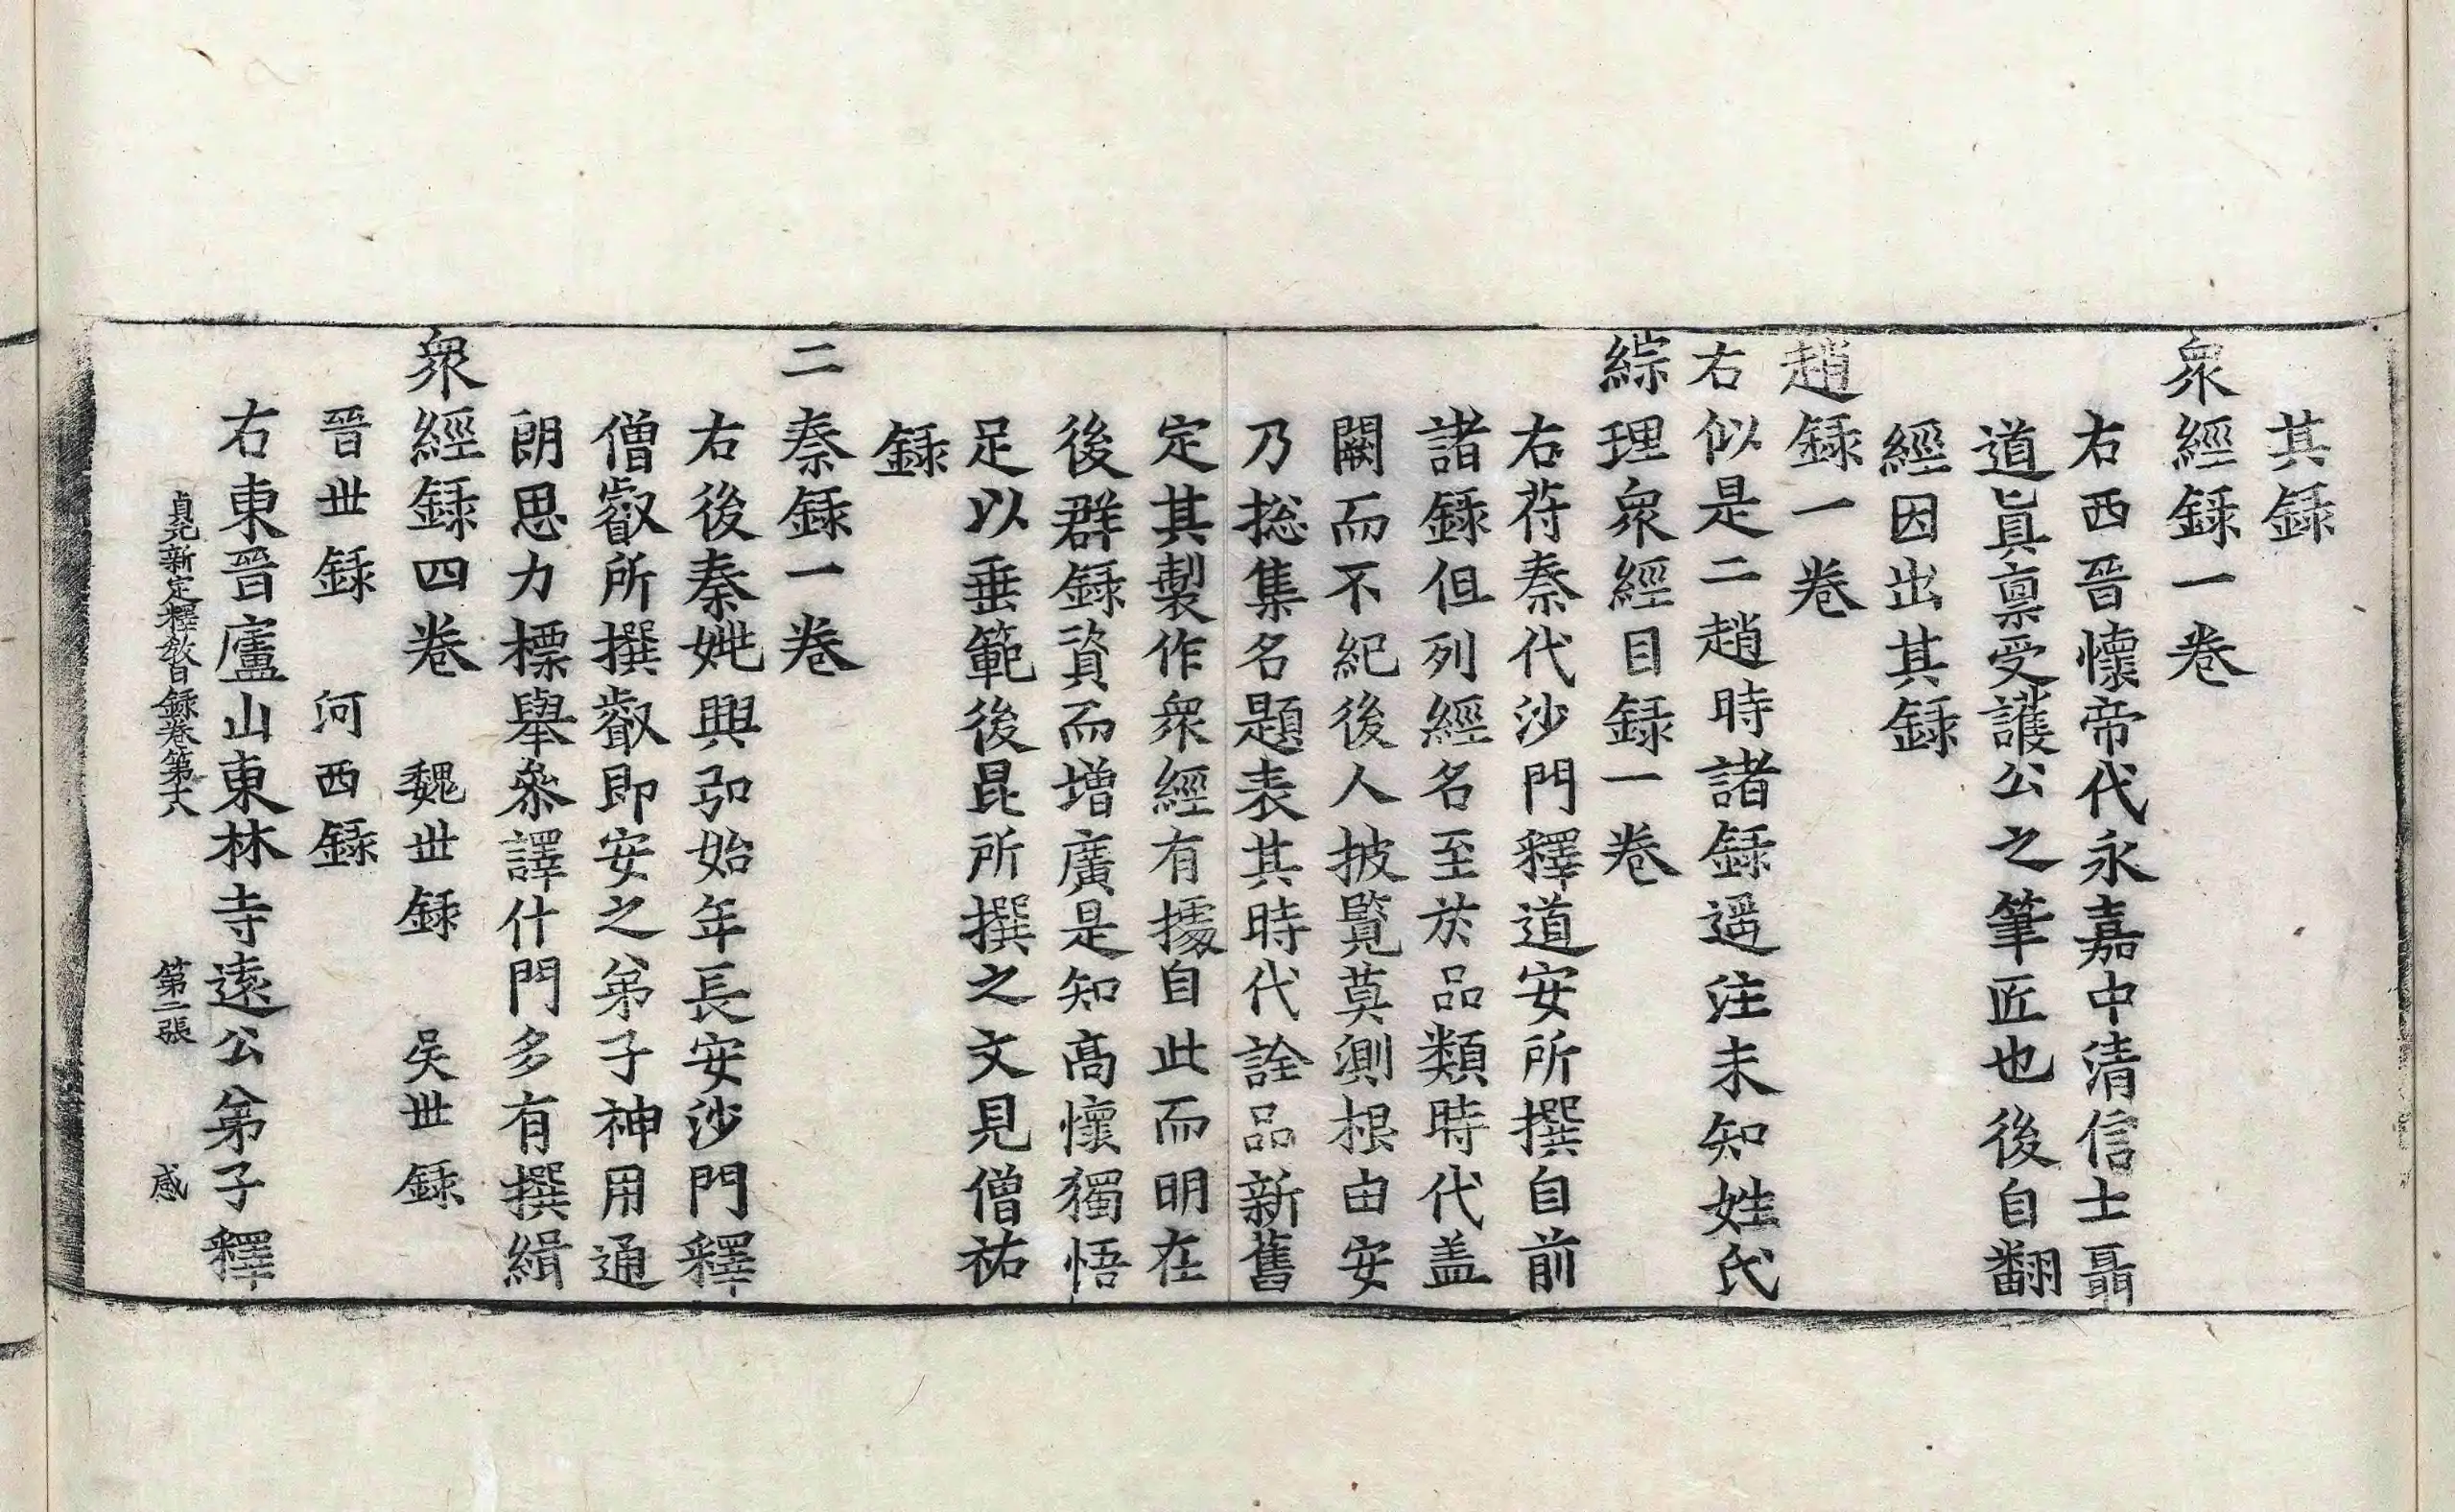 其録
衆經録一卷
右西晉懷帝代永嘉中清信士聶
道眞稟受護公之筆匠也後自翻
經因出其録
趙録一卷
右似是二趙時諸録遥注未知姓氏
綜理衆經目録一卷
右苻秦代沙門釋道安所撰自前
諸録但列經名至於品類時代盖
闕而不紀後人披覽莫測根由安
乃捴集名題表其時代詮品新舊
定其製作衆經有據自此而明在
後群録資而增廣是知高懷獨悟
足以垂範後昆所撰之文見僧祐
録
二秦録一卷
右後秦姚興弘始年長安沙門釋
僧叡所撰叡即安之弟子神用通
朗思力標舉叅譯什門多有撰緝
衆經録四卷 魏世録 吴世録
晉世録 河西録
右東晉廬山東林寺遠公弟子釋
貞元新定釋教目録卷第十八 第二張 感